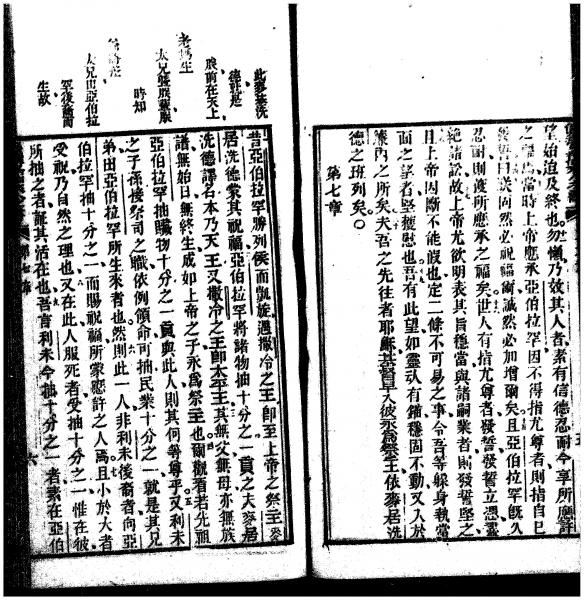 望始迨及終也勿懶乃效其人者素有信德忍耐今享所應許
之福焉當時上帝應承亞伯拉罕因不得指尤尊者則指自己
發誓曰我固然必祝福爾誠然必加增爾矣且亞伯拉罕旣久
忍耐則護所應承之福矣世人有指尤尊者發誓發誓立憑
絕諸訟故上帝尤欲明表其旨穩當與諸嗣業者則發誓堅之
且上帝因斷不能假也定二條不可易之事令吾等躱身執當
面之望者堅獲慰也吾有此望如靈有錨穩固不動又入於
簾內之所矣夫吾之先往者耶穌基督早入彼爲祭主依麥居洗
德之班列矣〇
第七章
此麥基洗
德就是
朕前在天上
老媽生
太兄暨朕輩朕
時知
太兄由亞伯拉
罕後裔而
生故
昔亞伯拉罕勝列侯而凱旋遇撒冷之王卽至上帝之祭主麥
居洗德蒙其祝福亞伯拉罕將諸物抽十分之一貢之夫麥居
洗德譯名本乃天王又撒冷之王卽太平王其無父無母亦無族
譜無始日無終生成如上帝之子永爲祭主也爾觀看若先祖
亞伯拉罕抽贓物十分之一貢與此人則其何等尊乎又利未
之子孫接祭司之職依例領命可抽民業十分之一就是其兄
弟出亞伯拉罕所生來者也然則此一人非利未後裔者向亞
伯拉罕抽十分之一而賜祝福所蒙應許之人焉且小於大者
受祝乃自然之理也又在此人服死者受抽十分之一惟在彼
所抽之者証其活在也吾言利未今抽十分之一者素在亞伯